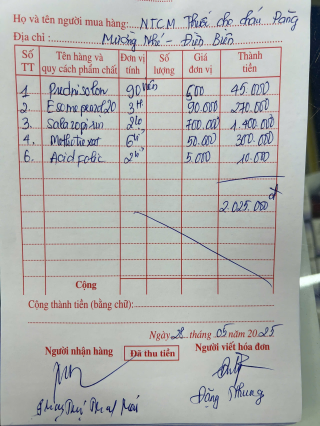 Họ và tên người mua hàng: NTCM Thuốc cho cháu Pàng
Địa chỉ: Mường Nhé - Điện Biên
Số TT Tên hàng và quy cách phẩm chất Đơn vị tính Số lượng Giá đơn vị Thành tiền
1 Prednisolon 90 viên 500 45.000
2. Esomeprazol 20 3H 90.000 270.000
3 Salazopirin 2lọ 700.000 1.400.000
4. Methotrexat 6vỉ 50.000 300.000
6. Acid folic 2vỉ 5.000 10.000
2.025.000đ
Cộng
Cộng thành tiền (bằng chữ):
Ngày 28 tháng 05 năm 2025
Người nhận hàng Đã thu tiền Người viết hóa đơn
Đặng Nhung